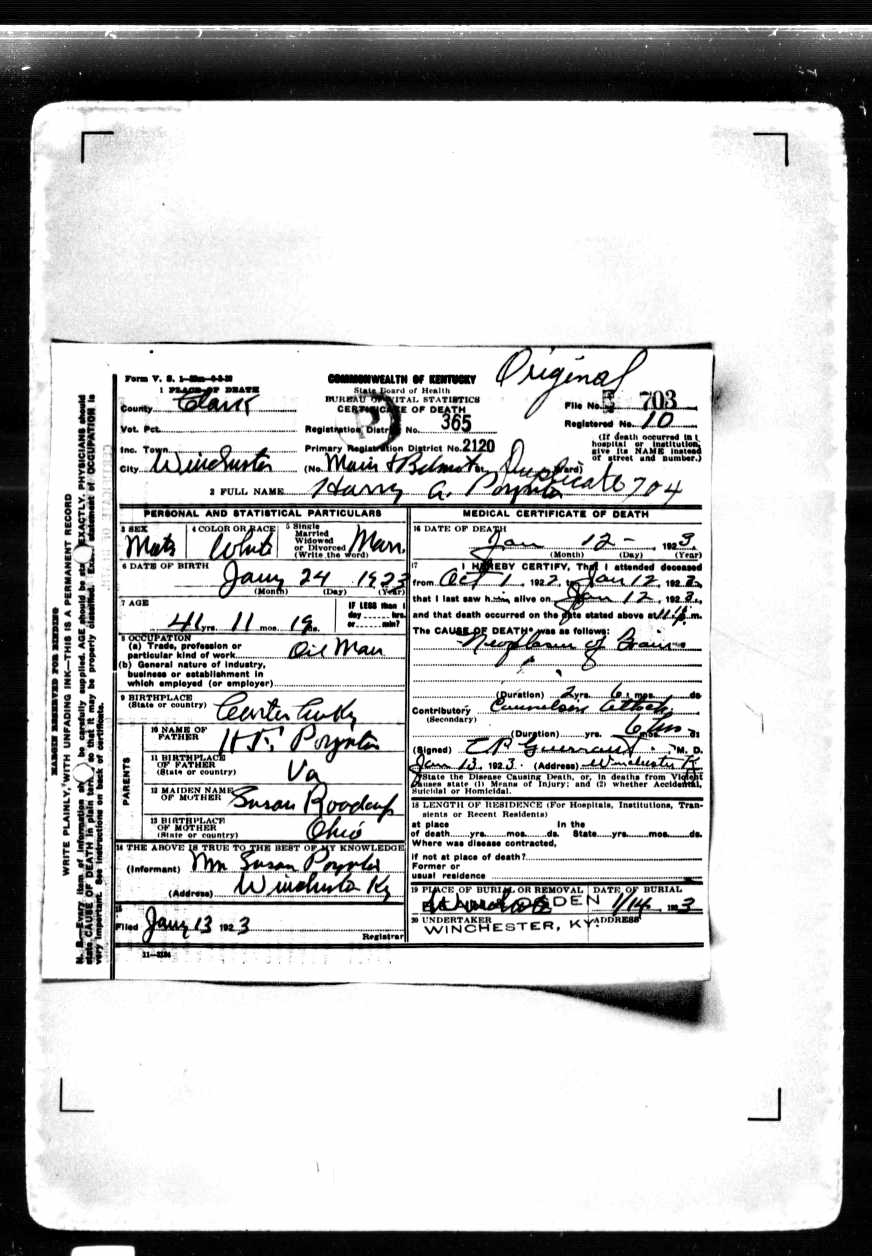 Original
Form V. S. 1
COMMONWEALTH OF KENTUCKY
State Board of Health
BUREAU OF VITAL STATISTICS
CERTIFICATE OF DEATH
1 PLACE OF DEATH
County Clark
File No. 703
Registered No. 10
Vot. Pct.
Registration District No. 365
(If death occurred in
hospital or institution,
give its NAME instead
of street and number.)
Inc. Town
Primary Registration District No. 2120
City Winchester (No. Main & Belmont Ward)
Duplicate 704
2 FULL NAME Harry G. Poynter
PERSONAL AND STATISTICAL PARTICULARS
3 SEX Male
4 COLOR OR RACE White
5 Single
Married
Widowed
or Divorced
(Write the word) Marr.
6 DATE OF BIRTH
Jany 24 1923
(Month) (Day) (Year)
7 AGE
41 yrs. 11 mos. 19 ds.
IF LESS than 1
day hrs.
or min?
8 OCCUPATION
(a) Trade, profession or
particular kind of work Oil Man
(b) General nature of industry,
business or establishment in
which employed (or employer)
9 BIRTHPLACE
(State or country) Carter Co Ky
PARENTS
10 NAME OF
FATHER H. F. Poynter
11 BIRTHPLACE
OF FATHER
(State or country) Va
12 MAIDEN NAME
OF MOTHER Susan
13 BIRTHPLACE
OF MOTHER
(State or country) Ohio
14 THE ABOVE IS TRUE TO THE BEST OF MY KNOWLEDGE
(Informant) Susan Poynter
(Address) Winchester Ky
15
Filed Jany 13 1923
Registrar
11-3184
MEDICAL CERTIFICATE OF DEATH
16 DATE OF DEATH
Jan 12 - 1923
(Month) (Day) (Year)
17 I HEREBY CERTIFY, That I attended deceased
from Oct 1, 1922 to Jan 12, 1923,
that I last saw him alive on Jan 12, 1923,
and that death occurred on the date stated above at m.
The CAUSE OF DEATH* was as follows:
Neoplasm of Brain
(Duration) 2 yrs. 6 mos. ds
Contributory
(Secondary)
(Duration) yrs. 6 mos. ds
(Signed) M. D.
Jan 13, 1923. (Address) Winchester K
*State the Disease Causing Death, or, in deaths from Violent
Causes state (1) Means of Injury; and (2) whether Accidental,
Suicidal or Homicidal.
18 LENGTH OF RESIDENCE (For Hospitals, Institutions, Tran-
sients or Recent Residents)
at place In the
of death yrs. mos. ds. State yrs. mos. ds.
Where was disease contracted,
if not at place of death?
Former or
usual residence
19 PLACE OF BURIAL OR REMOVAL
DATE OF BURIAL
1/14 1923
20 UNDERTAKER
ADDRESS
WINCHESTER, KY.
MARGIN RESERVED FOR BINDING
WRITE PLAINLY, WITH UNFADING INK—THIS IS A PERMANENT RECORD
N. B.—Every item of information should be carefully supplied. AGE should be stated EXACTLY. PHYSICIANS should
state CAUSE OF DEATH in plain terms, so that it may be properly classified. Exact statement of OCCUPATION is
very important. See instructions on back of certificate.